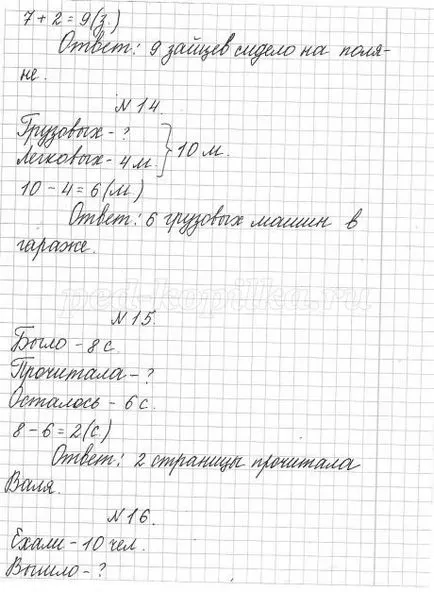 7 + 2 = 9 (з.)
Ответ: 9 зайцев сидело на поля-
не.
N 14.
Грузовых - ?
Легковых - 4 м. } 10 м.
10 - 4 = 6 (м)
Ответ: 6 грузовых машин в
гараже.
ped-kopilka.ru
N 15.
Было - 8 с.
Прочитала - ?
Осталось - 6 с.
8 - 6 = 2 (с)
Ответ: 2 страницы прочитала
Валя.
N 16.
Ехали - 10 чел.
Вышло - ?